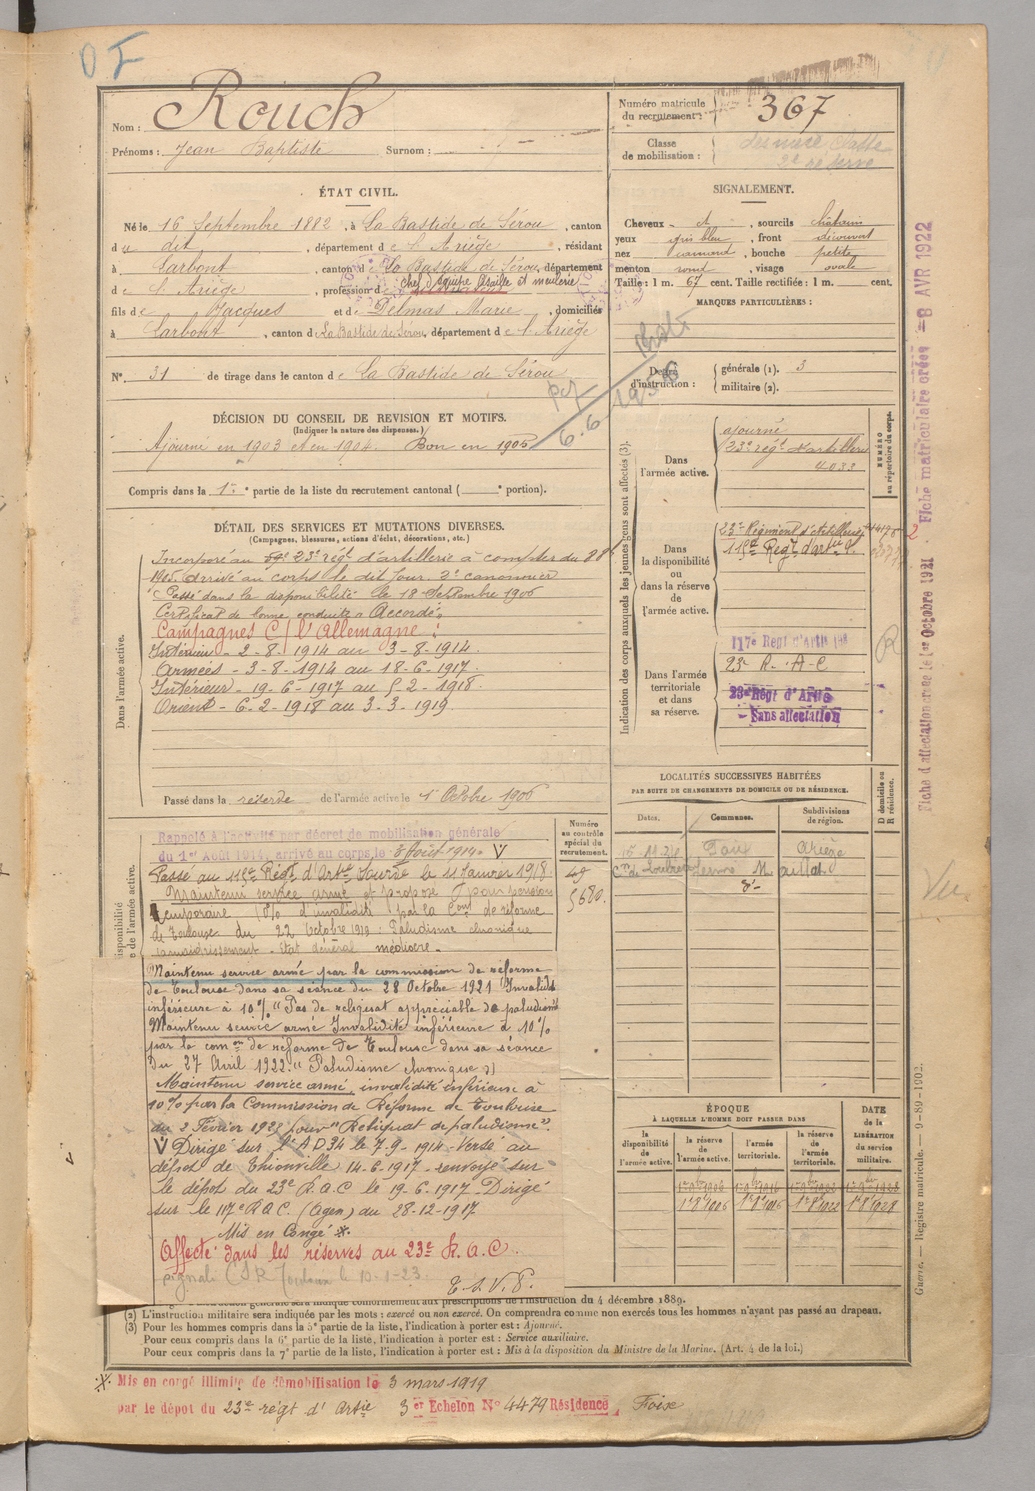 OI
Nom : Rouch
Prénoms : Jean Baptiste Surnom :
Numéro matricule du recrutement : 367
Classe de mobilisation : dernière classe 2e réserve
ÉTAT CIVIL.
Né le 16 Septembre 1882, à La Bastide de Sérou, canton
du dit, département de l'Ariège, résidant
à Larbont, canton de La Bastide de Sérou, département
de l'Ariège, profession de chef d'équipe et meulerie
fils de Jacques et de Delmas Marie, domiciliés
à Larbont, canton de La Bastide de Sérou, département de l'Ariège
N° 31 de tirage dans le canton de La Bastide de Sérou
SIGNALEMENT.
Cheveux ct, sourcils châtain
yeux gris bleu, front découvert
nez camard, bouche petite
menton rond, visage ovale
Taille : 1 m. 67 cent. Taille rectifiée : 1 m. cent.
MARQUES PARTICULIÈRES :
Degré d'instruction : générale (1). 3
militaire (2).
6.6
DÉCISION DU CONSEIL DE REVISION ET MOTIFS.
(Indiquer la nature des dispenses.)
Ajourné en 1903 et en 1904. Bon en 1905
Compris dans la 1re partie de la liste du recrutement cantonal ( portion).
DÉTAIL DES SERVICES ET MUTATIONS DIVERSES.
(Campagnes, blessures, actions d'éclat, décorations, etc.)
Dans l'armée active.
Incorporé au 23e régt d'artillerie à compter du 8 8bre
1905. Arrivé au corps le dit jour. 2e canonnier
Passé dans la disponibilité le 18 Septembre 1906
Certificat de bonne conduite Accordé.
Campagnes C/ l'Allemagne :
Intérieur - 2-8-1914 au 3-8-1914.
Armées - 3-8-1914 au 18-6-1917.
Intérieur - 19-6-1917 au 5-2-1918.
Orient - 6-2-1918 au 3-3-1919.
Passé dans la réserve de l'armée active le 1er Octobre 1906
Indication des corps auxquels les jeunes gens sont affectés (3).
NUMÉRO au répertoire du corps.
Dans l'armée active.
ajourné
23e régt d'artillerie
4033
Dans la disponibilité ou dans la réserve de l'armée active.
23e Régiment d'Artillerie
115e Régt d'artie
Dans l'armée territoriale et dans sa réserve.
117e Regt d'Artie
23e R.A.C
23e Régt d'Artie
- Sans affectation
R
Fiche d'affectation créée le 1er Octobre 1921. Fiche matriculaire créée = 8 AVR 1922
LOCALITÉS SUCCESSIVES HABITÉES
PAR SUITE DE CHANGEMENTS DE DOMICILE OU DE RÉSIDENCE.
Dates. Communes. Subdivisions de région. D domicile ou R résidence.
Foix Ariège
Vu
Numéro au contrôle spécial du recrutement.
49
5680.
Rappelé à l'activité par décret de mobilisation générale
du 1er Août 1914, arrivé au corps le 3 Août 1914. V
Passé au 115e Régt d'Artie Lourde le 11 Janvier 1918.
Maintenu service armé et proposé pour pension
temporaire, 10% d'invalidité par la Comt de réforme
de Toulouse du 22 Octobre 1919 : Paludisme chronique
amaigrissement - Etat général médiocre -
Maintenu service armé par la commission de réforme
de Toulouse dans sa séance du 28 Octobre 1921 Invalidité
inférieure à 10% "Pas de reliquat appréciable de paludisme
Maintenu service armé Invalidité inférieure à 10%
par la comon de réforme de Toulouse dans sa séance
du 27 Avril 1922. "Paludisme chronique"
Maintenu service armé, invalidité inférieure à
10% par la Commission de Réforme de Toulouse
du 2 Février 1928 pour "Reliquat de paludisme".
V Dirigé sur l'A D 34 le 7-9-1914 - Versé au
dépôt de Thionville 14-6-1917 - renvoyé sur
le dépôt du 23e R.A.C le 19-6-1917. Dirigé
sur le 117e R.A.C. (Agen) du 28-12-1917
Mis en Congé ※.
Affecté dans les réserves au 23e R.A.C.
T.S.V.P.
ÉPOQUE
À LAQUELLE L'HOMME DOIT PASSER DANS
la disponibilité de l'armée active. la réserve de l'armée active. l'armée territoriale. la réserve de l'armée territoriale.
DATE de la LIBÉRATION du service militaire.
1er 8bre 1906 1er 8bre 1916 1er 8bre 1922 1er 8bre 1928
Guerre. — Registre matricule. — 9-89-1902.
instruction générale sera indiqué conformément aux prescriptions de l'instruction du 4 décembre 1889.
(2) L'instruction militaire sera indiquée par les mots : exercé ou non exercé. On comprendra comme non exercés tous les hommes n'ayant pas passé au drapeau.
(3) Pour les hommes compris dans la 5e partie de la liste, l'indication à porter est : Ajourné.
Pour ceux compris dans la 6e partie de la liste, l'indication à porter est : Service auxiliaire.
Pour ceux compris dans la 7e partie de la liste, l'indication à porter est : Mis à la disposition du Ministre de la Marine. (Art. 4 de la loi.)
※ Mis en congé illimité de démobilisation le 3 mars 1919
par le dépôt du 23e régt d'Artie 3er Echelon N° 4479 Résidence, Foix